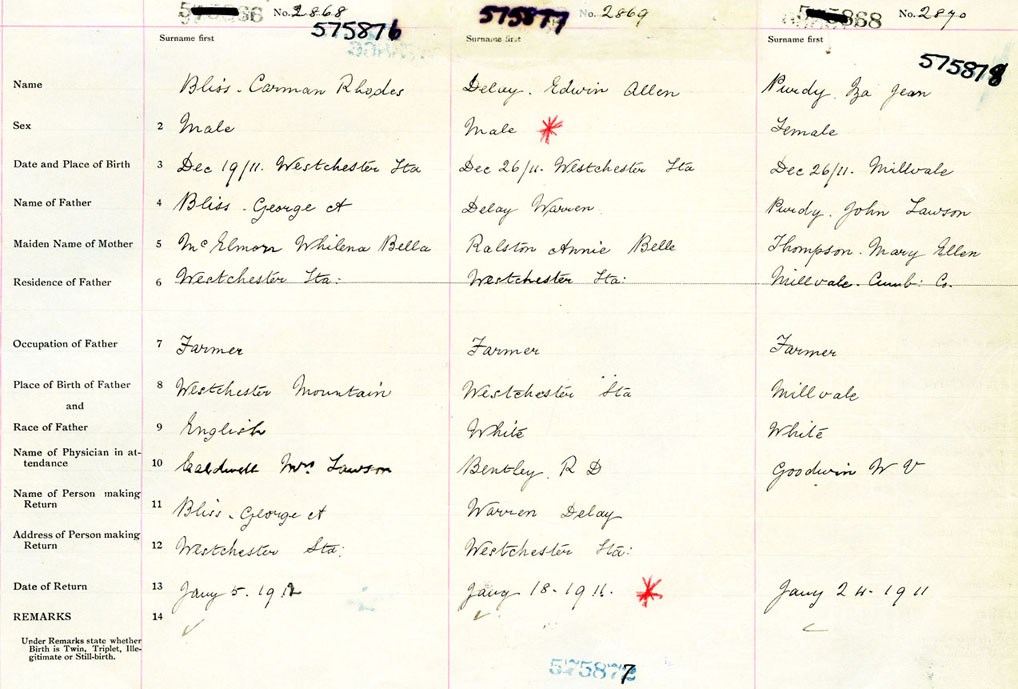 No. 2868 No. 2869 No. 2870
575876 575877 575878
Surname first Surname first Surname first
Name Bliss - Carman Rhodes Delay. Edwin Allen Purdy. Iza Jean
Sex 2 Male Male Female
Date and Place of Birth 3 Dec 19/11. Westchester Sta Dec 26/11. Westchester Sta Dec 26/11. Millvale
Name of Father 4 Bliss - George A Delay Warren Purdy. John Lawson
Maiden Name of Mother 5 McElmon Whilena Bella Ralston Annie Belle Thompson. Mary Ellen
Residence of Father 6 Westchester Sta: Westchester Sta: Millvale. Cumb: Co.
Occupation of Father 7 Farmer Farmer Farmer
Place of Birth of Father 8 Westchester Mountain Westchester Sta Millvale
and
Race of Father 9 English White White
Name of Physician in at-
tendance 10 Caldwell Mrs Lawson Bentley. R D Goodwin W V
Name of Person making
Return 11 Bliss - George A Warren Delay
Address of Person making
Return 12 Westchester Sta: Westchester Sta:
Date of Return 13 Jany 5. 1912 Jany 18-1911. Jany 24-1911
REMARKS 14
Under Remarks state whether
Birth is Twin, Triplet, Ille-
gitimate or Still-birth.
575877